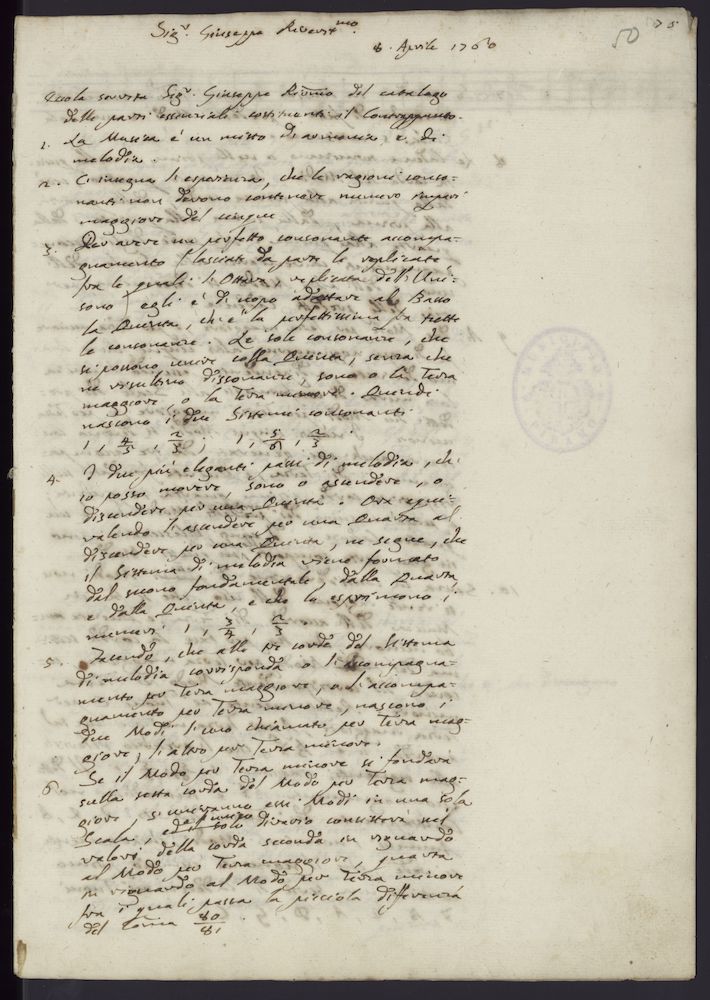 Sig.r Giuseppe Riverit.mo
8. Aprile 1760
50
75
Eccola servita Sig.r Giuseppe Rivmo del catalogo
delle parti essenziali costituenti il Contrappunto.
1. La Musica è un misto di armonia, e di
melodia.
2. C'insegna l'esperienza, che le ragioni conso=
nanti non devono contenere numero impari
maggiore del cinque
3. Per avere un perfetto consonante accompa=
gnamento (lasciate da parte le replicate
fra le quali l'Ottava, replicata dell'Uni=
sono) egli è di uopo adattare al Basso
la Quinta, ch'è la perfettissima fra tutte
le consonanze. Le sole consonanze, che
si possono unire colla Quinta, senza che
ne risultino dissonanze, sono o la Terza
maggiore, o la Terza minore. Quindi
nascono i due Sistemi consonanti
1, 4/5, 2/3; 1, 5/6, 2/3.
4. I due più eleganti passi di melodia, ch'
io posso movere, sono o ascendere, o
discendere per una Quinta. Ora equi=
valendo l'ascendere per una Quarta al
discendere per una Quinta, ne segue, che
il Sistema di melodia viene formato
dal suono fondamentale, dalla Quarta,
e dalla Quinta, e che lo esprimono i
numeri 1, 3/4, 2/3.
5. Facendo, che alle tre corde del Sistema
di melodia corrisponda o l'accompagna=
mento per Terza maggiore, o l'accompa=
gnamento per Terza minore, nascono i
due Modi l'uno chiamato per Terza mag=
giore, l'altro per Terza minore.
6. Se il Modo per Terza minore si fonderà
sulla sesta corda del Modo per Terza mag=
giore, s'uniranno essi Modi in una sola
Scala, ed il solo divario consisterà nel
valore della corda seconda in riguardo
al Modo per Terza maggiore, quarta
in riguardo al Modo per Terza minore
fra i quali passa la picciola differenza
del Coma 80/81.